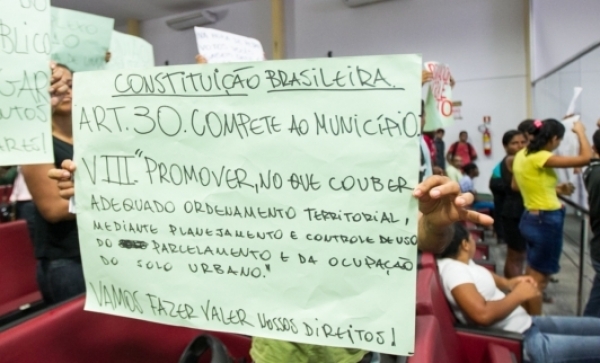 CONSTITUIÇÃO BRASILEIRA.
ART. 30. COMPETE AO MUNICÍPIO:
VIII. "PROMOVER, NO QUE COUBER
ADEQUADO ORDENAMENTO TERRITORIAL,
MEDIANTE PLANEJAMENTO E CONTROLE DE USO
DO PARCELAMENTO E DA OCUPAÇÃO
DO SOLO URBANO."
VAMOS FAZER VALER NOSSOS DIREITOS!